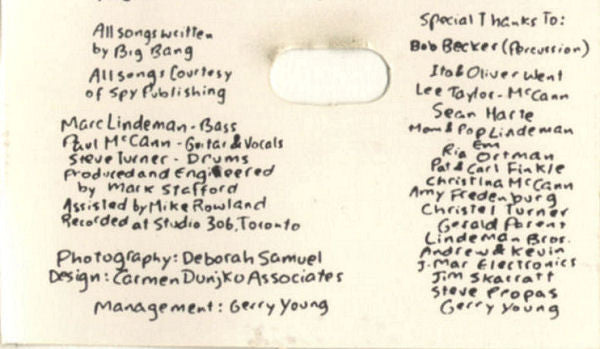 All songs written
by Big Bang
All songs Courtesy
of Spy Publishing
Marc Lindeman - Bass
Paul McCann - Guitar & Vocals
Steve Turner - Drums
Produced and Engineered
by Mark Stafford
Assisted by Mike Rowland
Recorded at Studio 306, Toronto
Photography: Deborah Samuel
Design: Carmen Dunjko Associates
Management: Gerry Young
Special Thanks To:
Bob Becker (Percussion)
Ita & Oliver Went
Lee Taylor - McCann
Sean Harte
Mom & Pop Lindeman
Em
Ria Ortman
Pat & Carl Finkle
Christina McCann
Amy Fredenburg
Christel Turner
Gerald Parent
Lindeman Bros.
Andrew & Kevin
J-Mar Electronics
Jim Skarratt
Steve Propas
Gerry Young